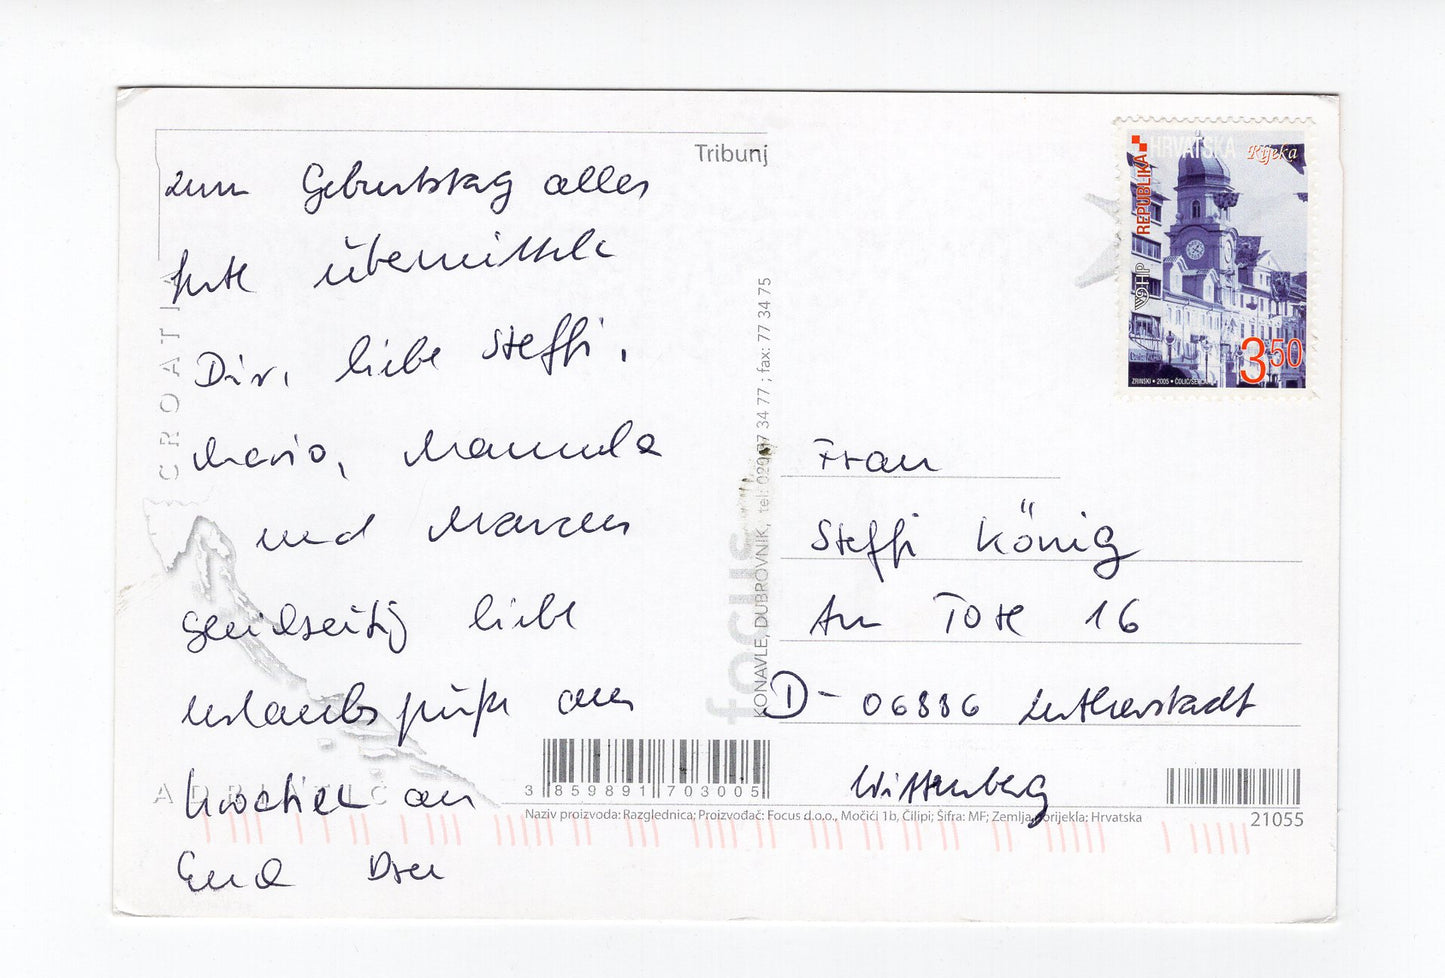 Tribunj
zum Geburtstag alles
Gute übermitteln
Dir, liebe Steffi,
Mario, Manuela
und Marcus
gleichzeitig liebe
Urlaubsgrüße aus
Kroatien an
Euch Drei
CROATIA
ADRIATIC
focus
KONAVLE, DUBROVNIK, tel: 020/77 34 77 ; fax: 77 34 75
REPUBLIKA HRVATSKA
Rijeka
HP
3 50
ZRINSKI • 2005 •
Frau
Steffi König
Am Tore 16
D-06886 Lutherstadt
Wittenberg
3 859891 703005
Naziv proizvoda: Razglednica; Proizvođač: Focus d.o.o., Močići 1b, Čilipi; Šifra: MF; Zemlja porijekla; Hrvatska
21055